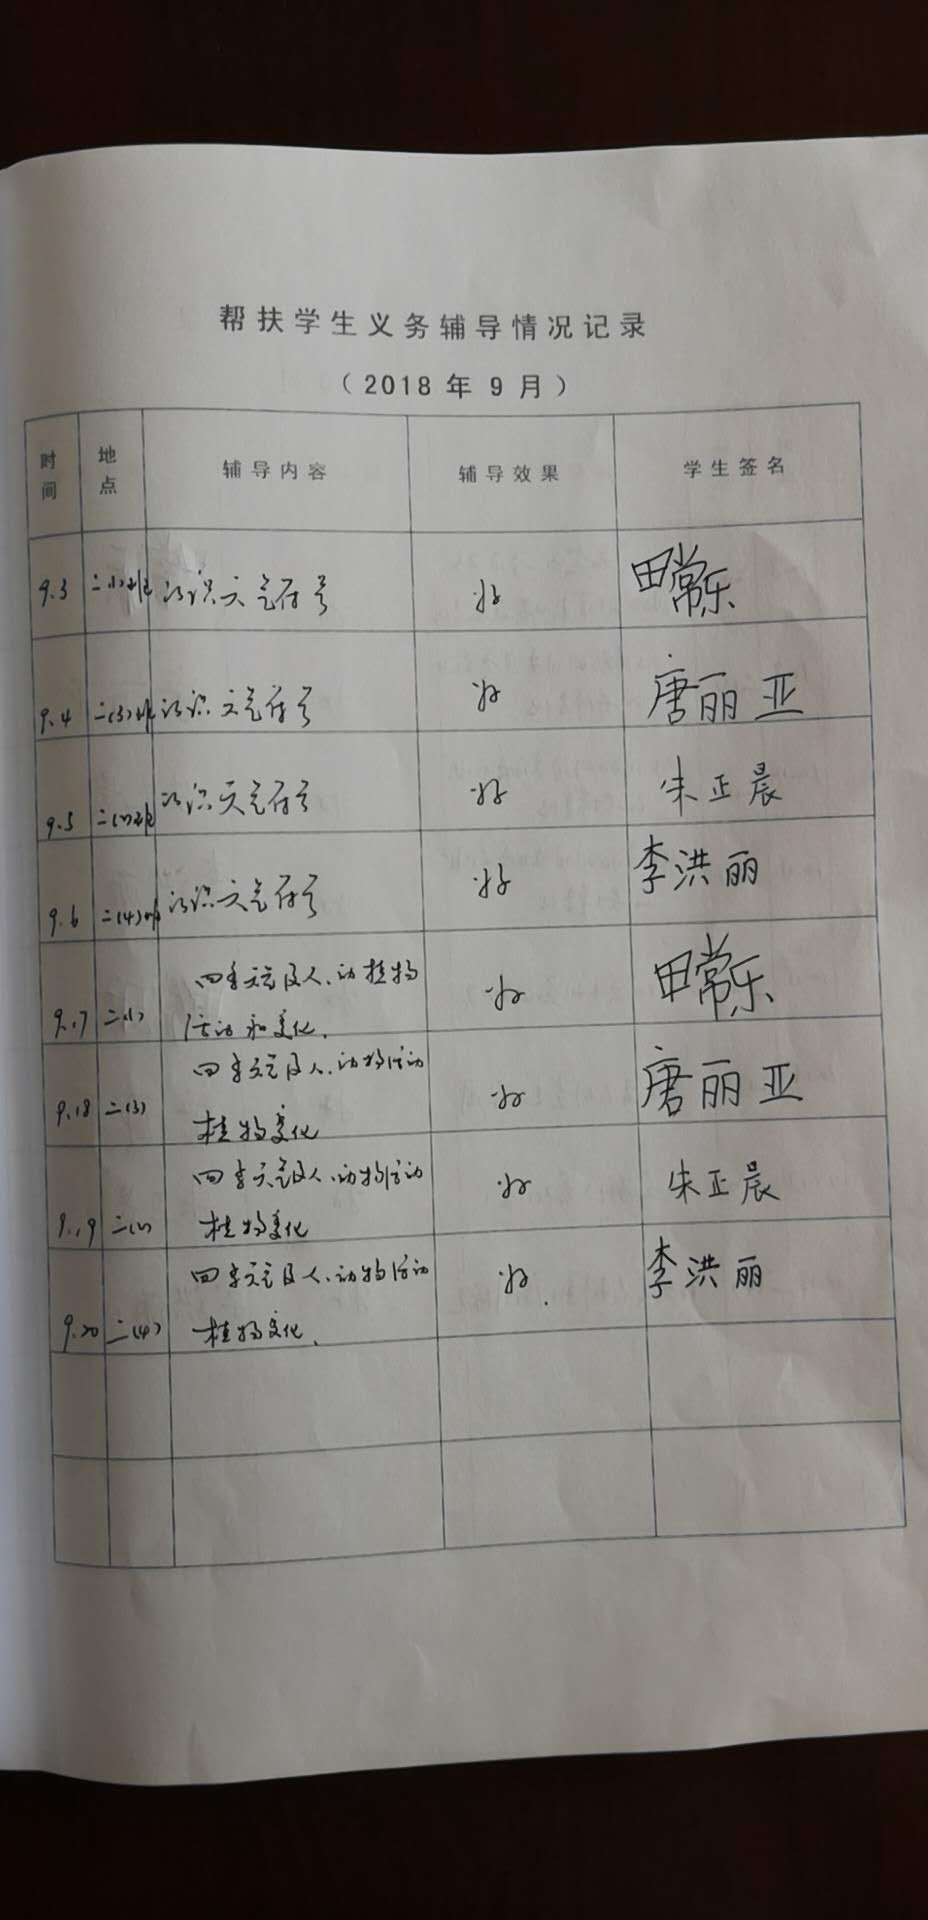 帮扶学生义务辅导情况记录
（2018 年 9 月）
时间 地点 辅导内容 辅导效果 学生签名
9.3 二(1)班 认识天气符号 好 田常乐
9.4 二(3)班 认识天气符号 好 唐丽亚
9.5 二(2)班 认识天气符号 好 朱正晨
9.6 二(4)班 认识天气符号 好 李洪丽
9.17 二(1) 四季天气及人、动植物 好 田常乐
活动和变化.
9.18 二(3) 四季天气及人、动物活动 好 唐丽亚
植物变化
9.19 二(2) 四季天气及人、动物活动 好 朱正晨
植物变化
9.20 二(4) 四季天气及人、动物活动 好. 李洪丽
植物变化.